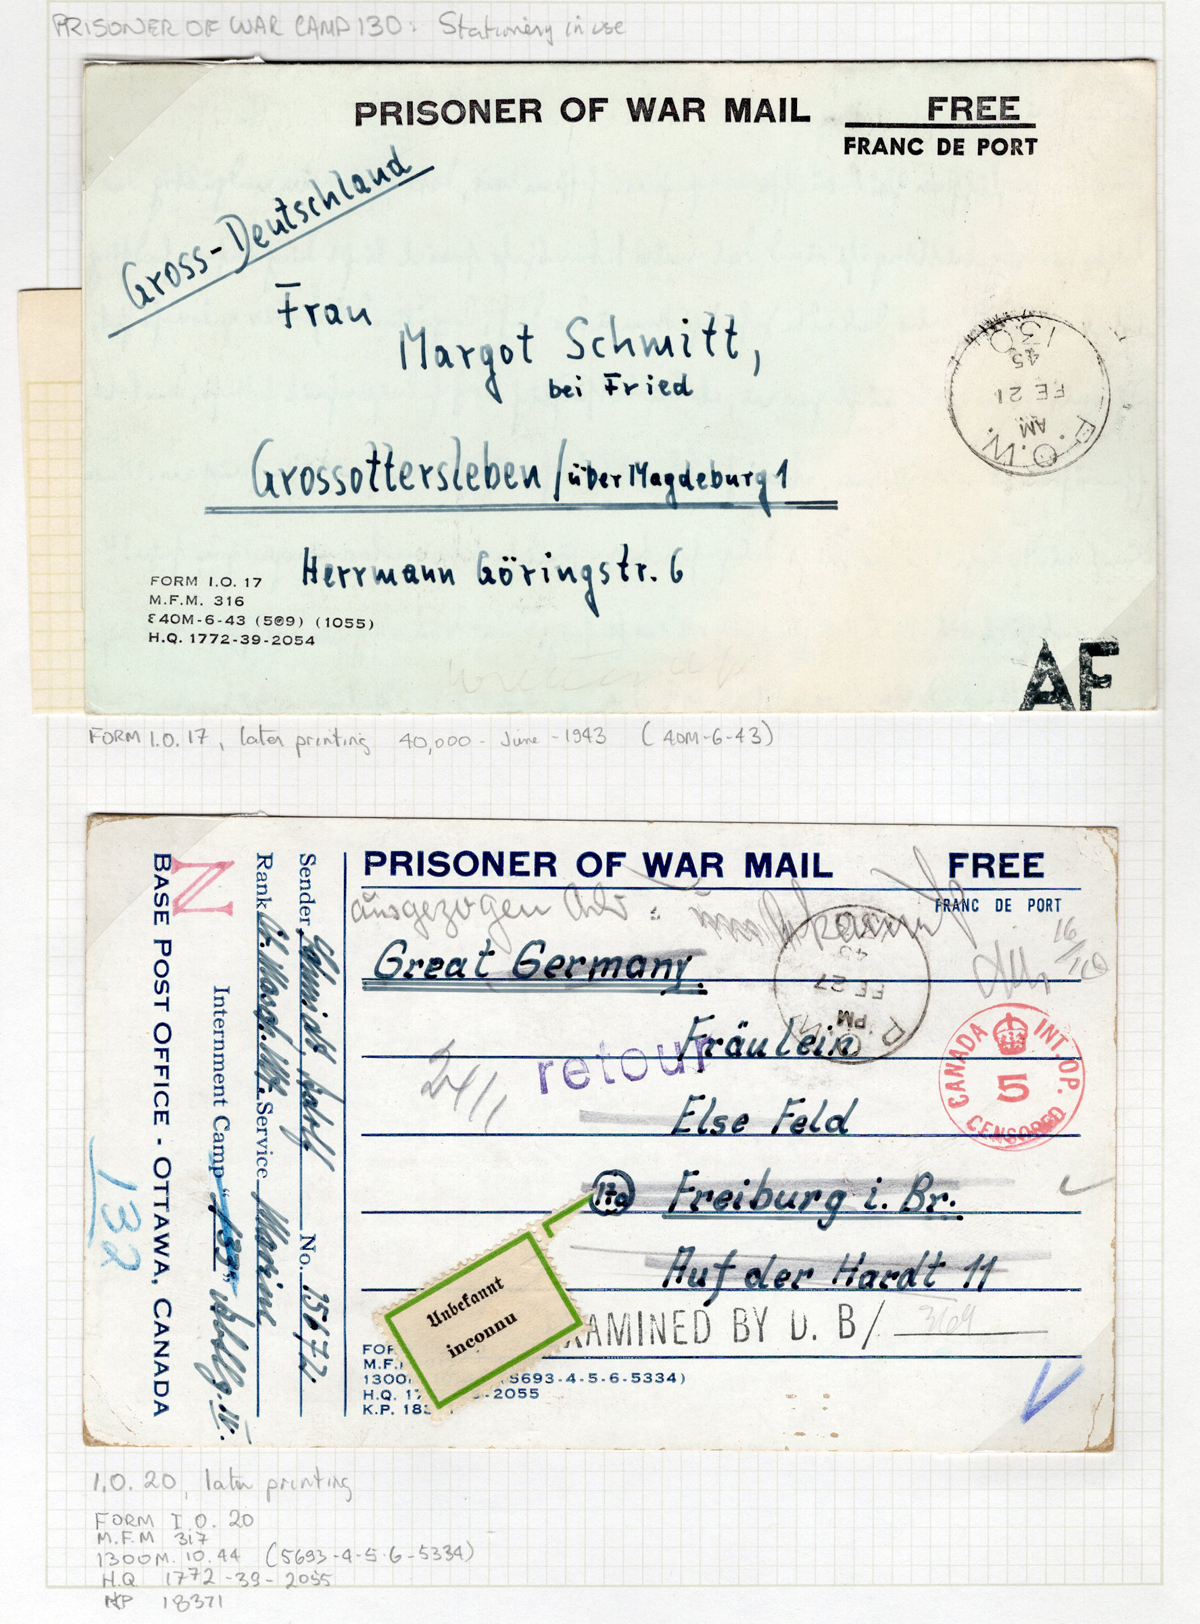 PRISONER OF WAR CAMP 130: Stationery in use
PRISONER OF WAR MAIL
FREE
FRANC DE PORT
Gross-Deutschland
Frau
Margot Schmitt,
bei Fried
Grossottersleben / über Magdeburg 1
Herrmann Göringstr. 6
P.O.W.
AM
FE 21
45
130
FORM I.O. 17
M.F.M. 316
40M-6-43 (509) (1055)
H.Q. 1772-39-2054
AF
FORM I.O. 17, later printing 40,000 - June - 1943 (40M-6-43)
PRISONER OF WAR MAIL
FREE
FRANC DE PORT
ausgezogen
Great Germany
P.O.W.
PM
FE 27
Fräulein
retour
Else Feld
17a
Freiburg i. Br.
Auf der Hardt 11
CANADA INT. OP.
5
CENSORED
Unbekannt
inconnu
AMINED BY D. B/ 369
FOR
M.F.
1300 (5693-4-5-6-5334)
H.Q. 17 -2055
K.P. 183
Sender Schmidt, No. 15672
Rank Service Marine
Internment Camp
BASE POST OFFICE - OTTAWA, CANADA
N
132
I.O. 20, later printing
FORM I.O. 20
M.F.M 317
1300M. 10.44 (5693-4-5-6-5334)
H.Q 1772-39-2055
KP 18371